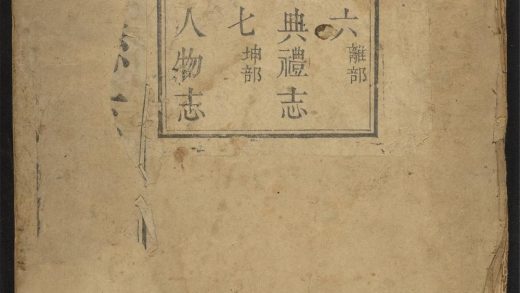 六離部
典禮志
七坤部
人物志